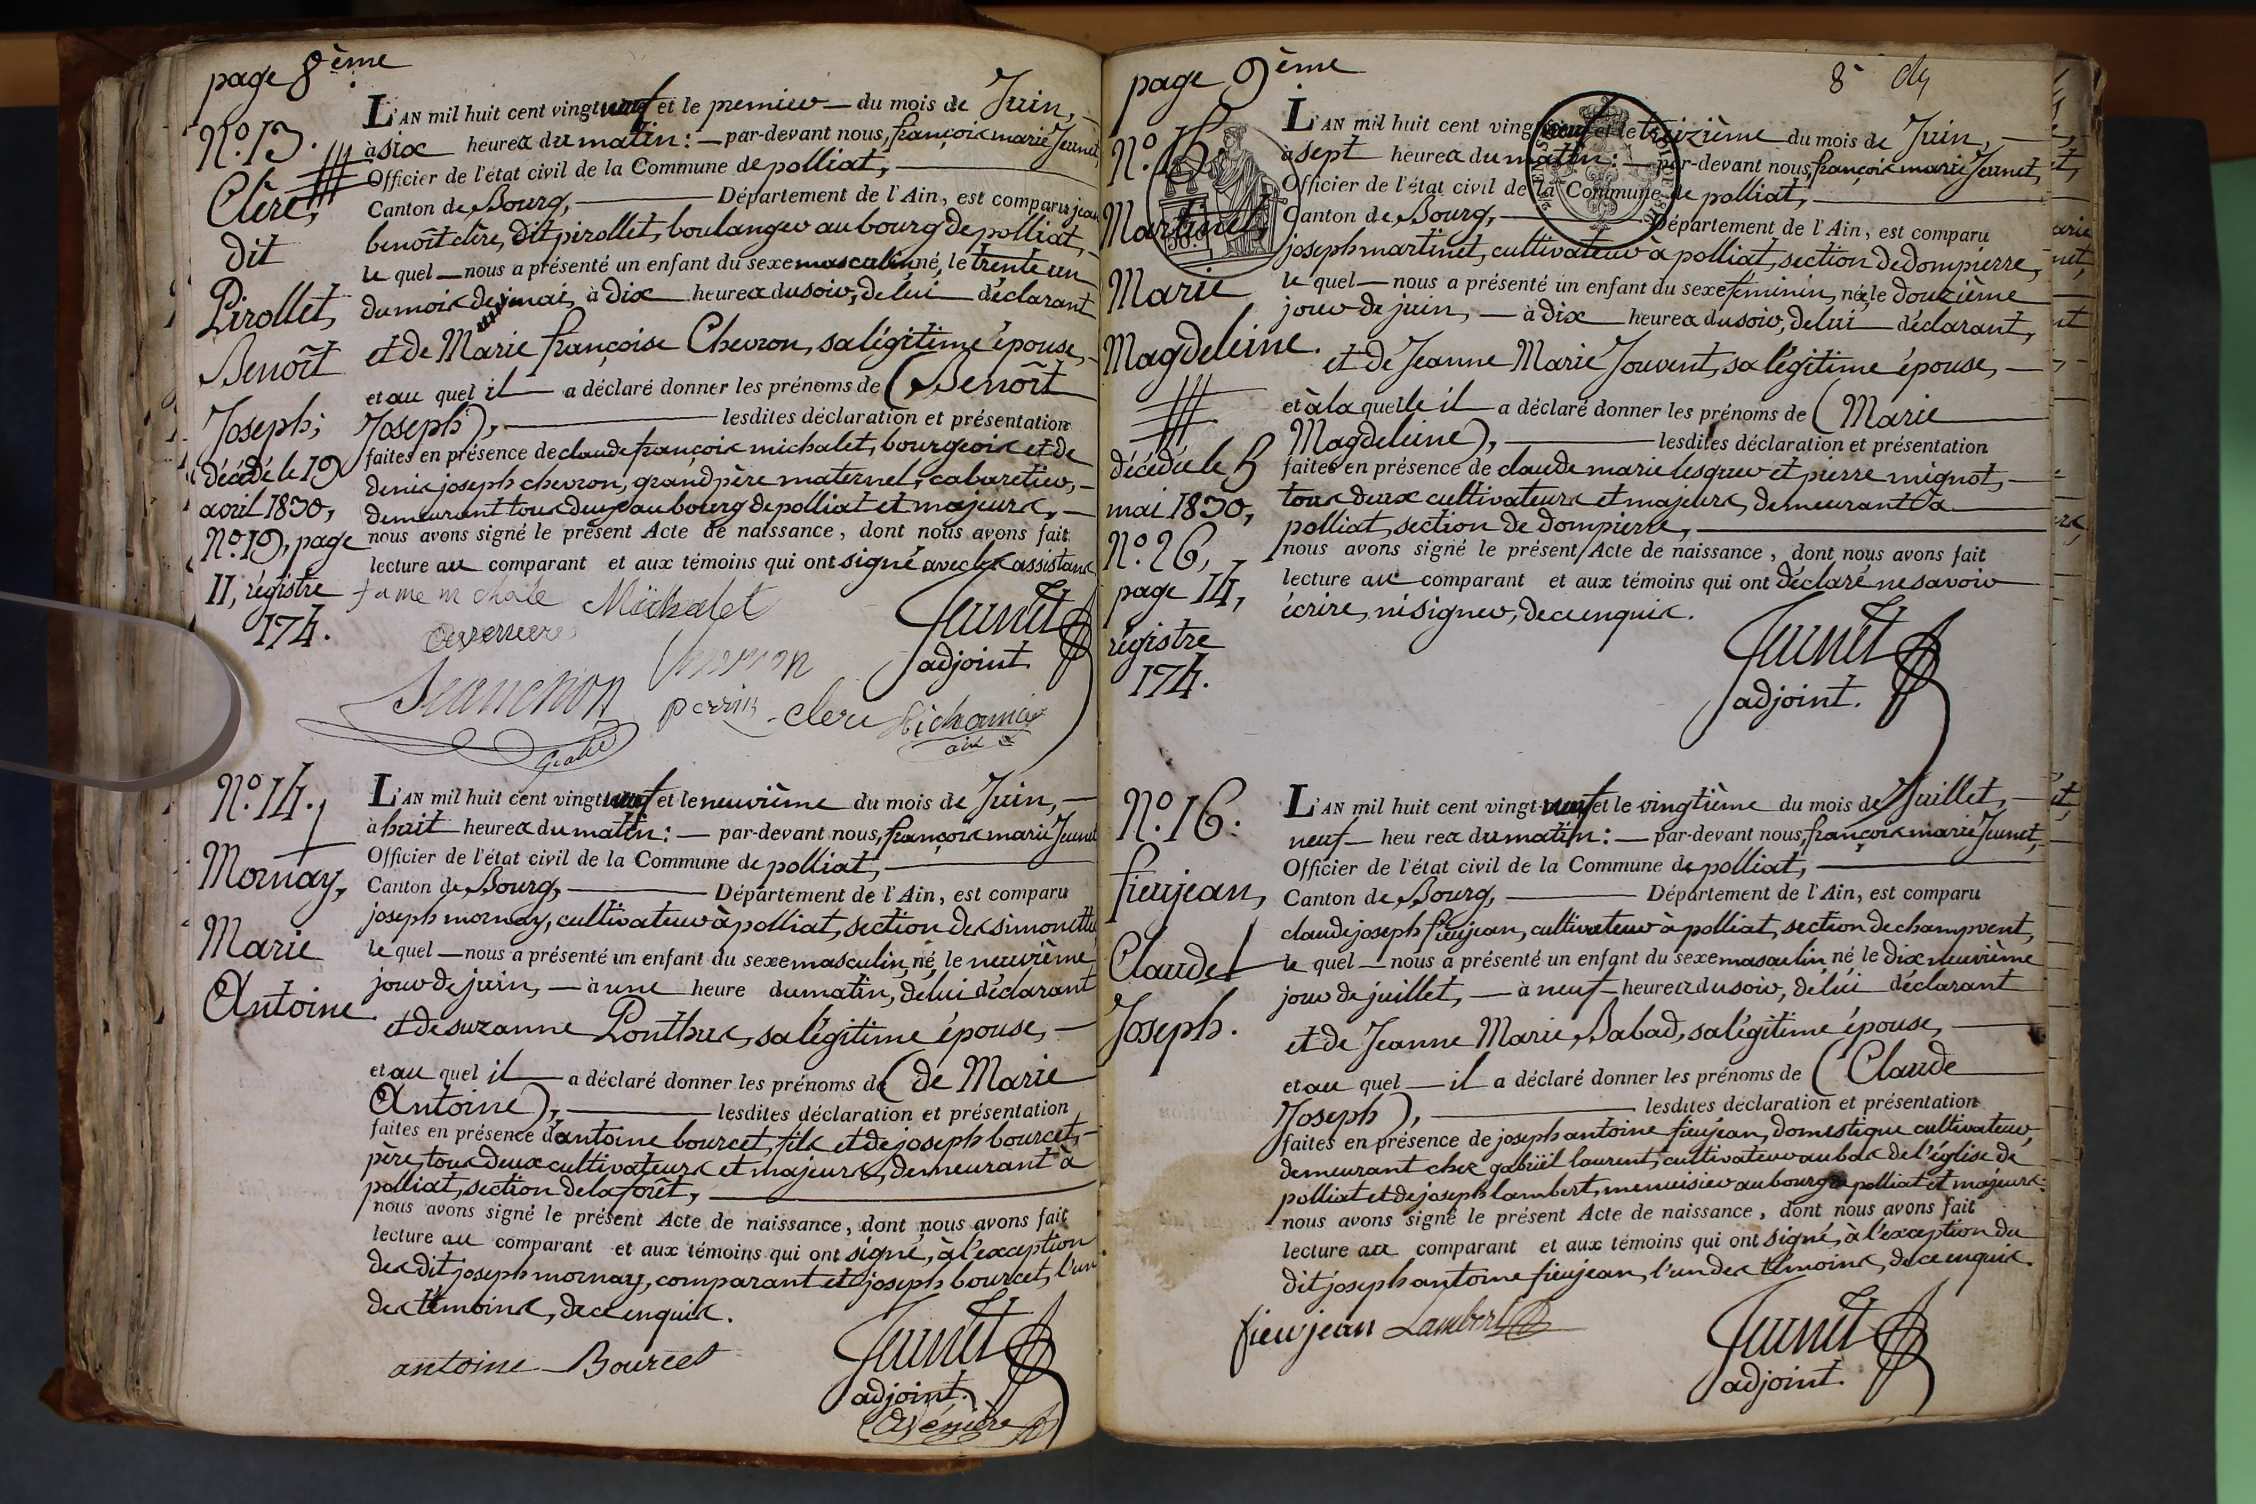 page 8ème
N.º 13.
Clere,
dit
Pirollet,
Benoît
Joseph;
décédé le 19
avril 1830,
N.º 19, page
11, régistre
174.
L'AN mil huit cent vingt neuf et le premier du mois de Juin,
à six heures du matin: par-devant nous, françois marie Jeunet
Officier de l'état civil de la Commune de polliat,
Canton de Bourg, Département de l'Ain, est comparu jean
benoît clere, dit pirollet, boulanger au bourg de polliat,
le quel nous a présenté un enfant du sexe masculin, né, le trente un
du mois de mai, à dix heures du soir, de lui déclarant
et de Marie françoise Chevron, sa légitime épouse,
et au quel il a déclaré donner les prénoms de (Benoît
Joseph), lesdites déclaration et présentation
faites en présence de claude françois michalet, bourgeois et de
denis joseph chevron, grand père maternel, cabaretier,
demeurant tous deux au bourg de polliat et majeurs,
nous avons signé le présent Acte de naissance, dont nous avons fait
lecture au comparant et aux témoins qui ont signé avec les assistans
Michalet
Jeunet
adjoint.
perrin clere
N.º 14.
Mornay,
Marie
Antoine.
L'AN mil huit cent vingt neuf et le neuvième du mois de Juin,
à huit heures du matin: par-devant nous, françois marie Jeunet
Officier de l'état civil de la Commune de polliat,
Canton de Bourg, Département de l'Ain, est comparu
joseph mornay, cultivateur à polliat, section des simonettes
le quel nous a présenté un enfant du sexe masculin, né, le neuvième
jour de juin, à une heure du matin, de lui déclarant
et de suzanne Ponthus, sa légitime épouse,
et au quel il a déclaré donner les prénoms de (de Marie
Antoine), lesdites déclaration et présentation
faites en présence d'antoine bourcet, fils et de joseph bourcet,
père, tous deux cultivateurs et majeurs, demeurant à
polliat, section de la forêt,
nous avons signé le présent Acte de naissance, dont nous avons fait
lecture au comparant et aux témoins qui ont signé, à l'exception
des dit joseph mornay, comparant et joseph bourcet, l'un
des témoins, de ce enquis.
antoine Bourcet
Jeunet
adjoint.
page 9ème
8e
N.º 15.
Martinet,
Marie
Magdeleine.
décédée le 5
mai 1830,
N.º 26,
page 14,
régistre
174.
L'AN mil huit cent vingt neuf et le treizième du mois de Juin,
à sept heures du matin: par-devant nous, françois marie Jeunet,
Officier de l'état civil de la Commune de polliat,
Canton de Bourg, Département de l'Ain, est comparu
joseph martinet, cultivateur à polliat, section de dompierre,
le quel nous a présenté un enfant du sexe féminin, née, le douzième
jour de juin, à dix heures du soir, de lui déclarant,
et de Jeanne Marie Jouvent, sa légitime épouse,
et à la quelle il a déclaré donner les prénoms de (Marie
Magdeleine), lesdites déclaration et présentation
faites en présence de claude marie lesquer et pierre mignot,
tous deux cultivateurs et majeurs, demeurant à
polliat, section de dompierre,
nous avons signé le présent Acte de naissance, dont nous avons fait
lecture au comparant et aux témoins qui ont déclaré ne savoir
écrire, ni signer, de ce enquis.
Jeunet
adjoint.
N.º 16.
fieujean,
Claude
Joseph.
L'AN mil huit cent vingt-neuf et le vingtième du mois de Juillet,
neuf heures du matin: par-devant nous, françois marie Jeunet,
Officier de l'état civil de la Commune de polliat,
Canton de Bourg, Département de l'Ain, est comparu
claude joseph fieujean, cultivateur à polliat, section de champvent,
le quel nous a présenté un enfant du sexe masculin né le dix neuvième
jour de juillet, à neuf heures du soir, de lui déclarant
et de Jeanne Marie Babad, sa légitime épouse,
et au quel il a déclaré donner les prénoms de (Claude
Joseph), lesdites déclaration et présentation
faites en présence de joseph antoine fieujean, domestique cultivateur,
demeurant chez gabriël laurent, cultivateur au bas de l'église de
polliat et de joseph lambert, menuisier au bourg de polliat et majeurs:
nous avons signé le présent Acte de naissance, dont nous avons fait
lecture au comparant et aux témoins qui ont signé, à l'exception du
dit joseph antoine fieujean, l'un des témoins, de ce enquis.
fieujean Lambert
Jeunet
adjoint.